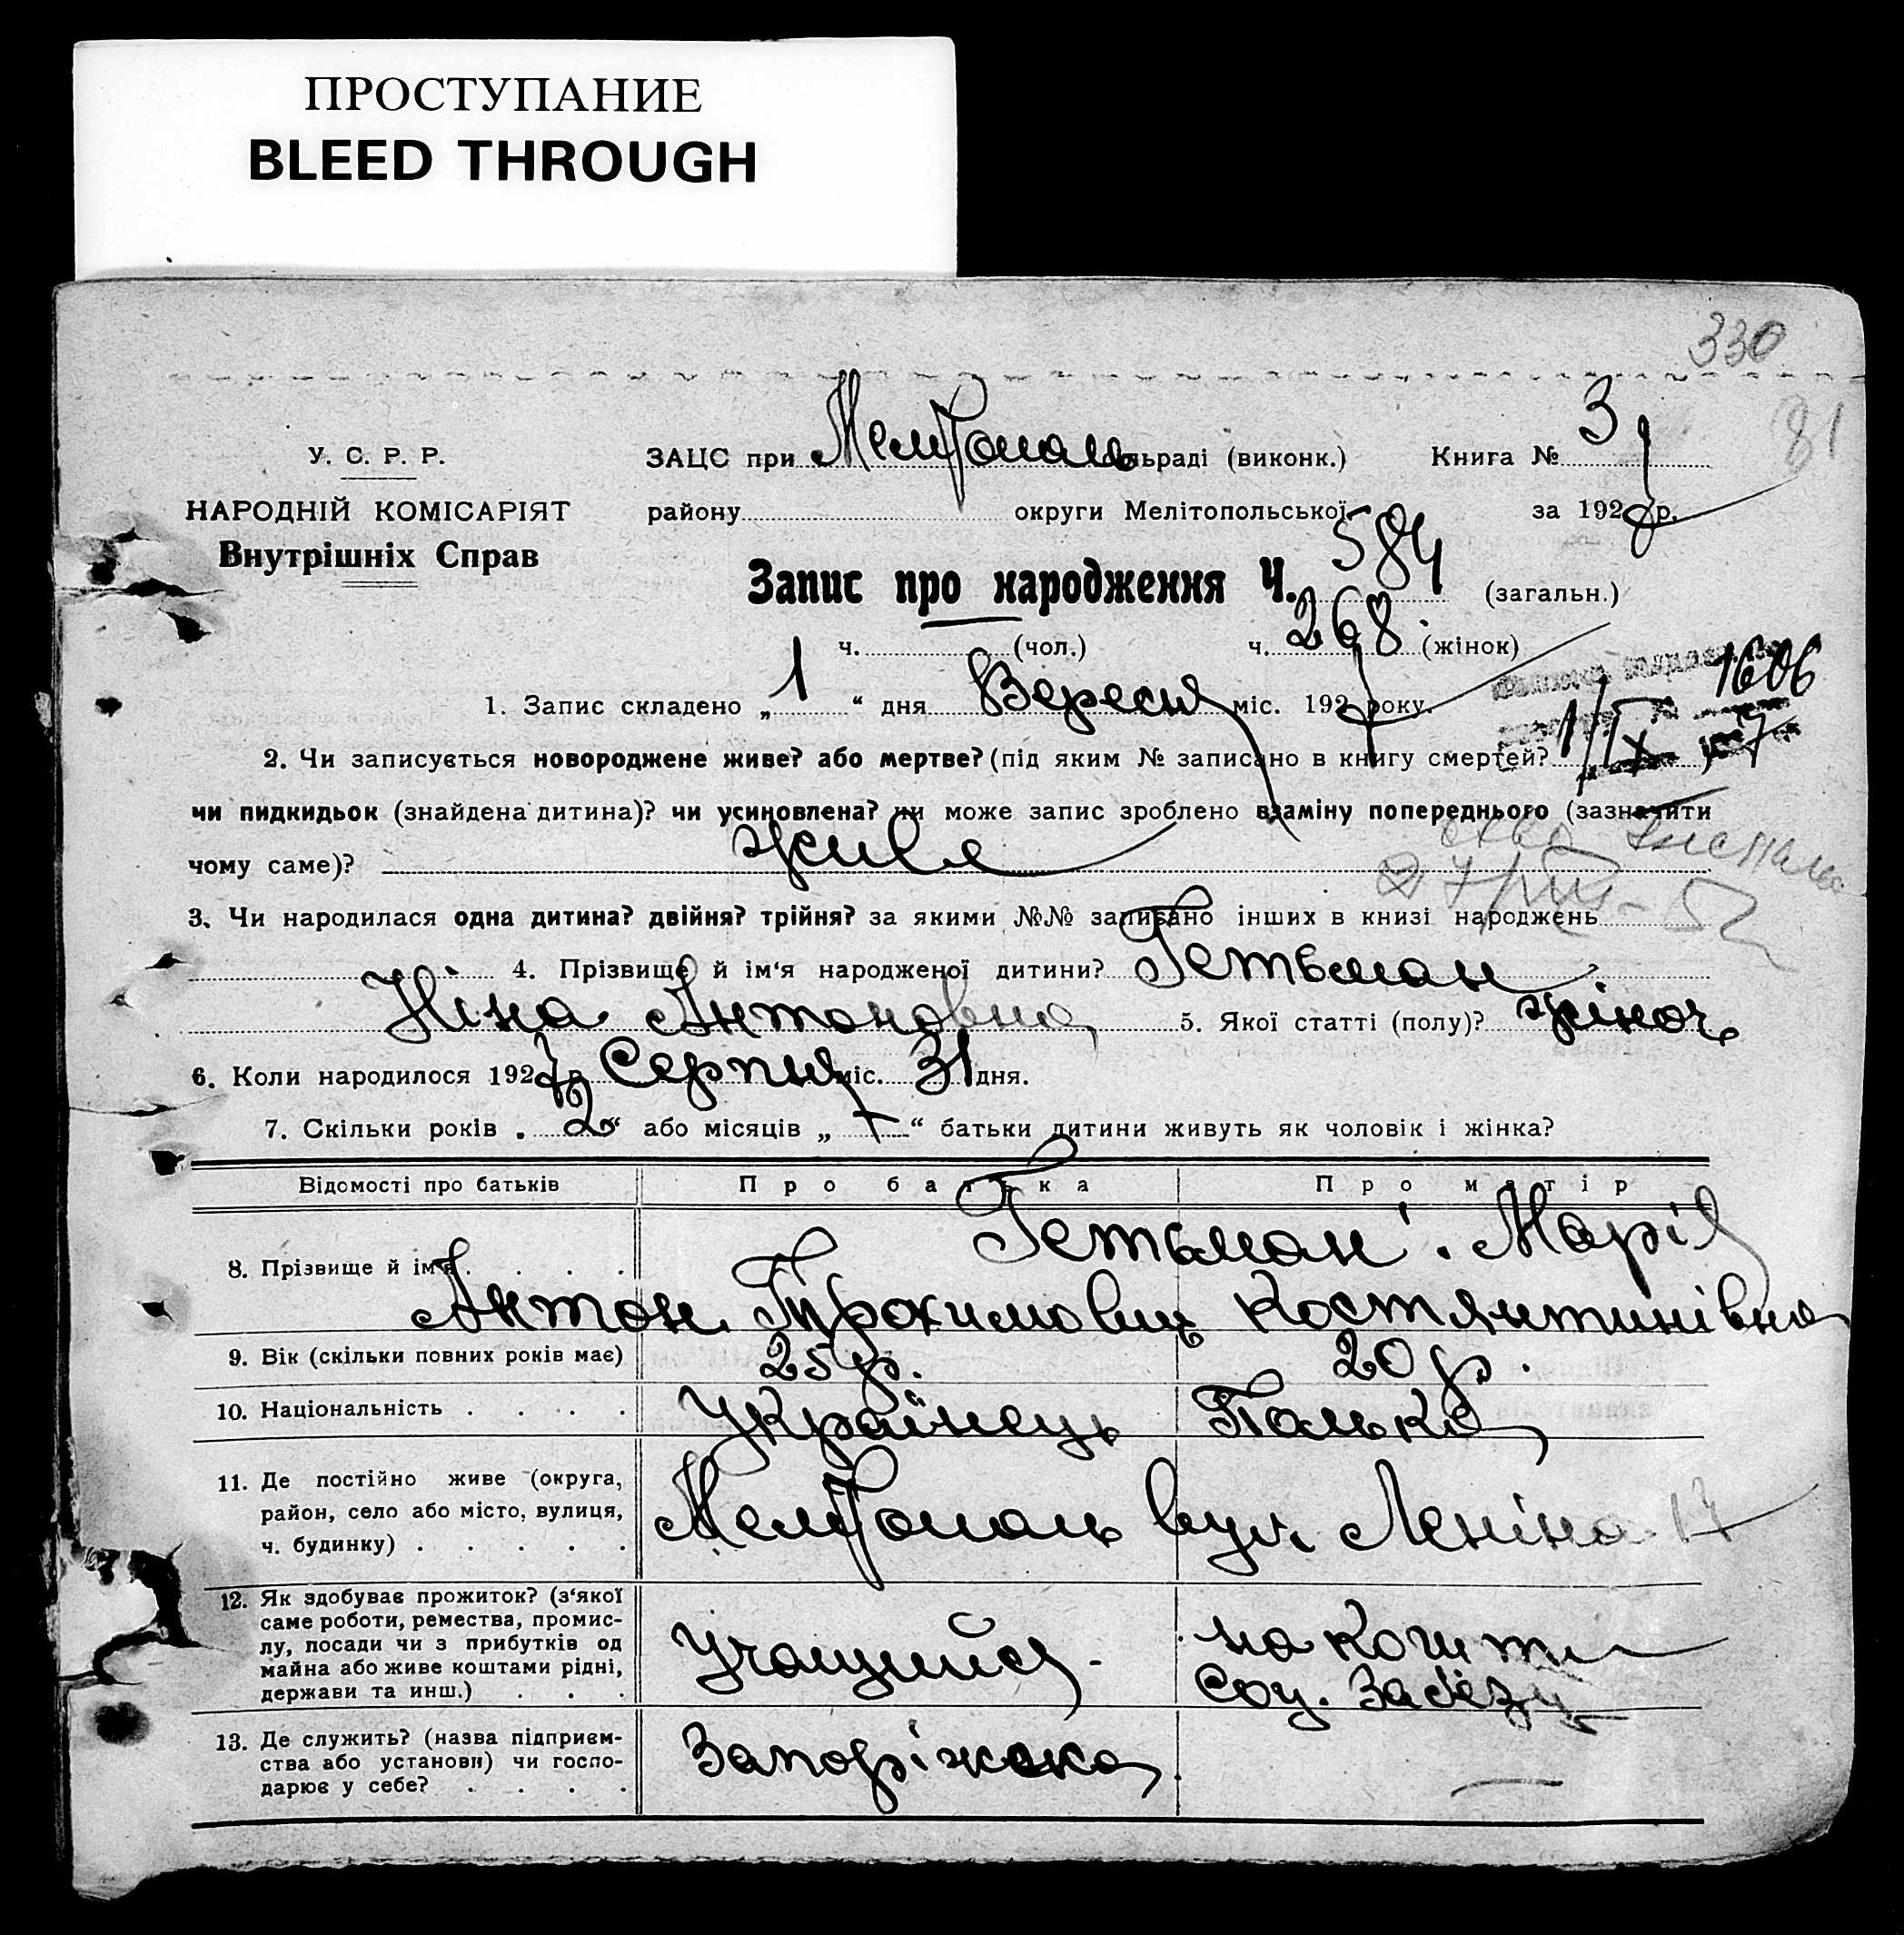 ПРОСТУПАНИЕ
BLEED THROUGH
330
81
У. С. Р. Р.
НАРОДНІЙ КОМІСАРІЯТ
Внутрішніх Справ
ЗАЦС при Мелітополь сільраді (виконк.) Книга № 3
району округи Мелітопольської за 1927 р.
Запис про народження Ч. 584 (загальн.)
ч. (чол.) ч. 268 (жінок)
1. Запис складено „ 1 “ дня Вересня міс. 1927 року.
1606
1/IX 27
2. Чи записується новороджене живе? або мертве? (під яким № записано в книгу смертей?
чи пидкидьок (знайдена дитина)? чи усиновлена? чи може запис зроблено взаміну попереднього (зазначити
чому саме)? живе
3. Чи народилася одна дитина? двійня? трійня? за якими №№ записано інших в книзі народжень
4. Прізвище й ім‘я народженої дитини? Гетьман
Ніна Антоновна 5. Якої статті (полу)? жіноч.
6. Коли народилося 1927 р. Серпня міс. 31 дня.
7. Скільки років „ 2 “ або місяців „ “ батьки дитини живуть як чоловік і жінка?
Відомості про батьків Про батька Про матір
8. Прізвище й ім‘я Гетьман Марія
Антон Трохимович Костянтинівна
9. Вік (скільки повних років має) 25 р. 20 р.
10. Національність Українець Полька
11. Де постійно живе (округа,
район, село або місто, вулиця,
ч. будинку) Мелітополь вул. Леніна 17
12. Як здобуває прожиток? (з‘якої
саме роботи, ремества, промис-
лу, посади чи з прибутків од
майна або живе коштами рідні,
держави та инш.)
учащийся
на кошти
Соц. Забезу
13. Де служить? (назва підприєм-
ства або установи) чи госпо-
дарює у себе?
Запоріжська